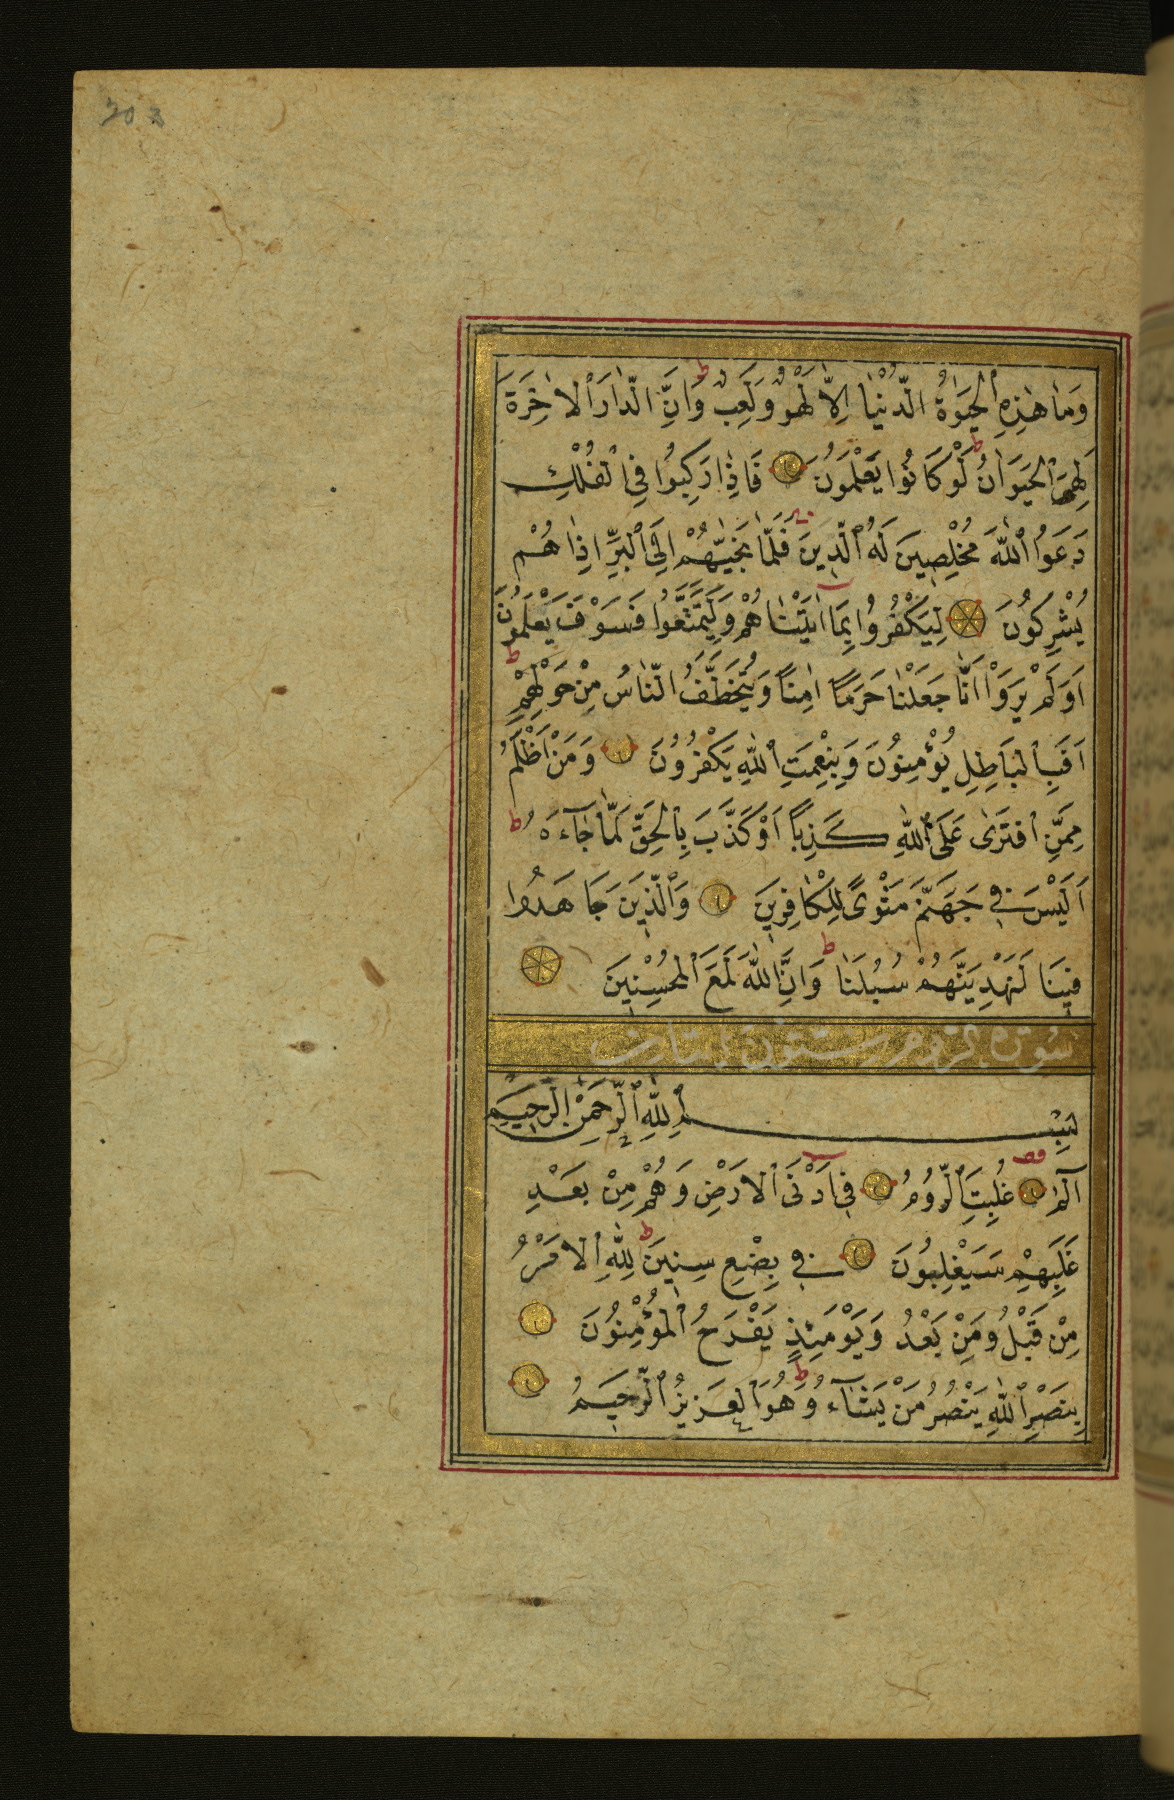 203
وَمَا هٰذِهِ الْحَيَوٰةُ الدُّنْيَا اِلَّا لَهْوٌ وَلَعِبٌ ط وَاِنَّ الدَّارَ الْاٰخِرَةَ
لَهِىَ الْحَيَوَانُ ط لَوْ كَانُوا يَعْلَمُونَ فَاِذَا رَكِبُوا فِى الْفُلْكِ
دَعَوُا اللّٰهَ مُخْلِصِينَ لَهُ الدِّينَ فَلَمَّا نَجّٰيهُمْ اِلَى الْبَرِّ اِذَا هُمْ
يُشْرِكُونَ لِيَكْفُرُوا بِمَا اٰتَيْنَاهُمْ وَلِيَتَمَتَّعُوا فَسَوْفَ يَعْلَمُونَ
اَوَلَمْ يَرَوْا اَنَّا جَعَلْنَا حَرَمًا اٰمِنًا وَيُتَخَطَّفُ النَّاسُ مِنْ حَوْلِهِمْ ط
اَفَبِالْبَاطِلِ يُؤْمِنُونَ وَبِنِعْمَتِ اللّٰهِ يَكْفُرُونَ وَمَنْ اَظْلَمُ
مِمَّنِ افْتَرٰى عَلَى اللّٰهِ كَذِبًا اَوْ كَذَّبَ بِالْحَقِّ لَمَّا جَآءَهُ ط
اَلَيْسَ فِى جَهَنَّمَ مَثْوًى لِلْكَافِرِينَ وَالَّذِينَ جَاهَدُوا
فِينَا لَنَهْدِيَنَّهُمْ سُبُلَنَا ط وَاِنَّ اللّٰهَ لَمَعَ الْمُحْسِنِينَ
سورة الروم ستون ايات
بِسْمِ اللّٰهِ الرَّحْمٰنِ الرَّحِيمِ
الٓمٓ غُلِبَتِ الرُّومُ فِى اَدْنَى الْاَرْضِ وَهُمْ مِنْ بَعْدِ
غَلَبِهِمْ سَيَغْلِبُونَ فِى بِضْعِ سِنِينَ ط لِلّٰهِ الْاَمْرُ
مِنْ قَبْلُ وَمِنْ بَعْدُ وَيَوْمَئِذٍ يَفْرَحُ الْمُؤْمِنُونَ
بِنَصْرِ اللّٰهِ يَنْصُرُ مَنْ يَشَآءُ ط وَهُوَ الْعَزِيزُ الرَّحِيمُ